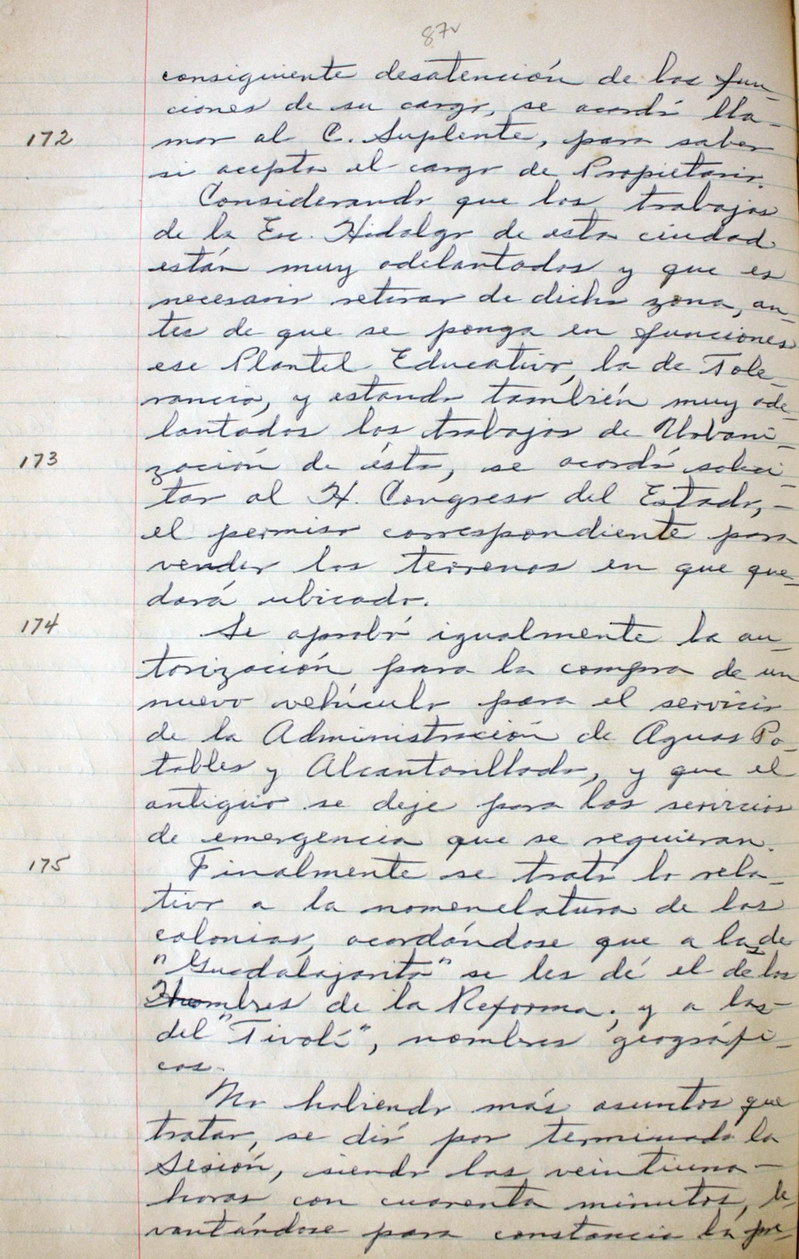 87v
consiguiente desatención de las fun-
ciones de su cargo, se acordó lla-
172
mar al C. Suplente, para saber
si acepta el cargo de Propietario.
Considerando que los trabajos
de la Esc. Hidalgo de esta ciudad
están muy adelantados y que es
necesario retirar de dicha zona, an-
tes de que se ponga en funciones
ese Plantel Educativo, la de Tole-
rancia, y estando también muy ade-
lantados los trabajos de Urbani-
173
zación de ésta, se acordó solici-
tar al H. Congreso del Estado, -
el permiso correspondiente para
vender los terrenos en que que-
dará ubicada.
174
Se aprobó igualmente la au-
torización para la compra de un
nuevo vehículo para el servicio
de la Administración de Aguas Po-
tables y Alcantarillado, y que el
antiguo se deje para los servicios
de emergencia que se requieran.
175
Finalmente se trató lo rela-
tivo a la nomenclatura de las
colonias, acordándose que a las de
"Guadalajarita" se les dé el de los
Hombres de la Reforma; y a las
del "Tivoli", nombres geográfi-
cos.
No habiendo más asuntos que
tratar, se dió por terminada la
Sesión, siendo las veintiuna -
horas con cuarenta minutos, le-
vantándose para constancia la pre-